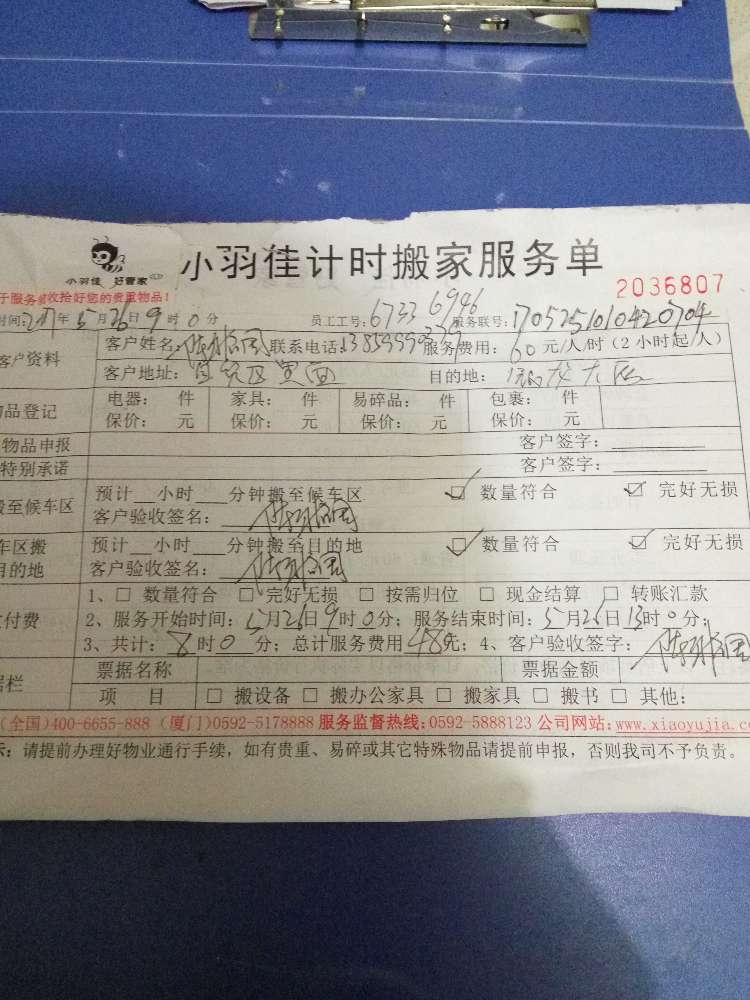 小羽佳 好管家
小羽佳计时搬家服务单
于服务 收拾好您的贵重物品！
2036807
时间: 年5月26日9时0分 员工工号: 6733 6946 服务联号: 1705251010420704
客户资料 客户姓名: 联系电话: 服务费用: 60元/人/时(2小时起/人)
客户地址: 目的地:
品登记 电器: 件 家具: 件 易碎品: 件 包裹: 件
保价: 元 保价: 元 保价: 元 保价: 元
物品申报 客户签字:
特别承诺 客户签字:
至候车区 预计__小时__分钟搬至候车区 ☑ 数量符合 ☑ 完好无损
客户验收签名:
车区搬 预计__小时__分钟搬至目的地 ☑ 数量符合 ☑ 完好无损
目的地 客户验收签名:
1、□ 数量符合 □ 完好无损 □ 按需归位 □ 现金结算 □ 转账汇款
付费 2、服务开始时间: 5月26日9时0分; 服务结束时间: 5月26日13时0分;
3、共计: 8时0分; 总计服务费用480元; 4、客户验收签字:
据栏 票据名称 票据金额
项 目 □ 搬设备 □ 搬办公家具 □ 搬家具 □ 搬书 □ 其他:
(全国)400-6655-888 (厦门)0592-5178888 服务监督热线:0592-5888123 公司网站:www.xiaoyujia.co
示: 请提前办理好物业通行手续，如有贵重、易碎或其它特殊物品请提前申报，否则我司不予负责。